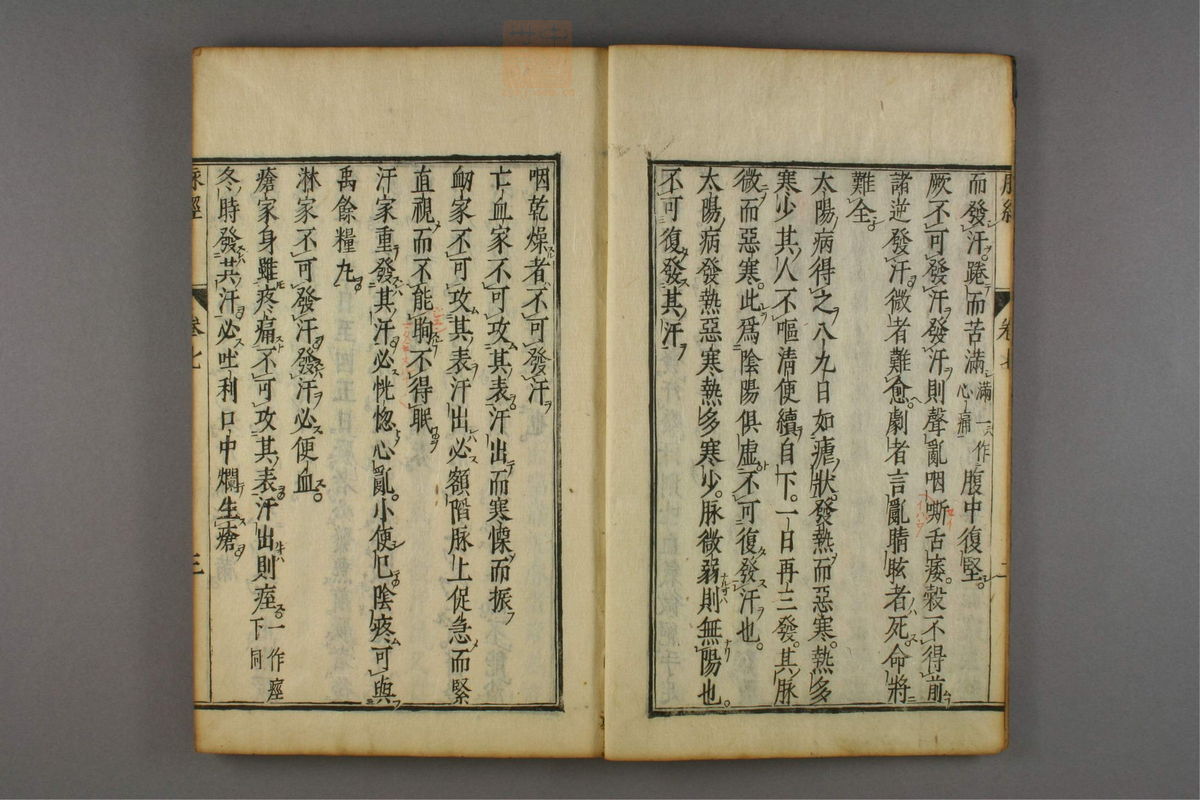 而發汗踡而苦滿滿一作心痛腹中復堅
厥不可發汗發汗則聲亂咽嘶舌痿穀不得前
諸逆發汗微者難愈劇者言亂睛眩者死命將
難全
太陽病得之八九日如瘧狀發熱而惡寒熱多
寒少其人不嘔清便續自下一日再三發其脉
微而惡寒此爲陰陽俱虛不可復發汗也
太陽病發熱惡寒熱多寒少脉微弱則無陽也
不可復發其汗
咽乾燥者不可發汗
亡血家不可攻其表汗出而寒慄而振
衂家不可攻其表汗出必額陷脉上促急而緊
直視而不能眴不得眠
汗家重發其汗必恍惚心亂小便已陰疼可與
禹餘糧丸
淋家不可發汗發汗必便血
瘡家身雖疼痛不可攻其表汗出則痓一作痙下同
冬時發其汗必吐利口中爛生瘡
脉經
卷七
三